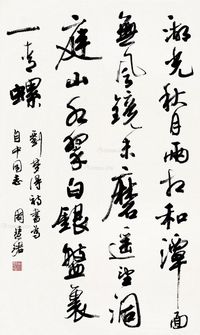 湖光秋月两相和潭面
無風鏡未磨遥望洞
庭山水翠白銀盤裏
一青螺
劉夢得詩書爲
自中同志
周慧珺